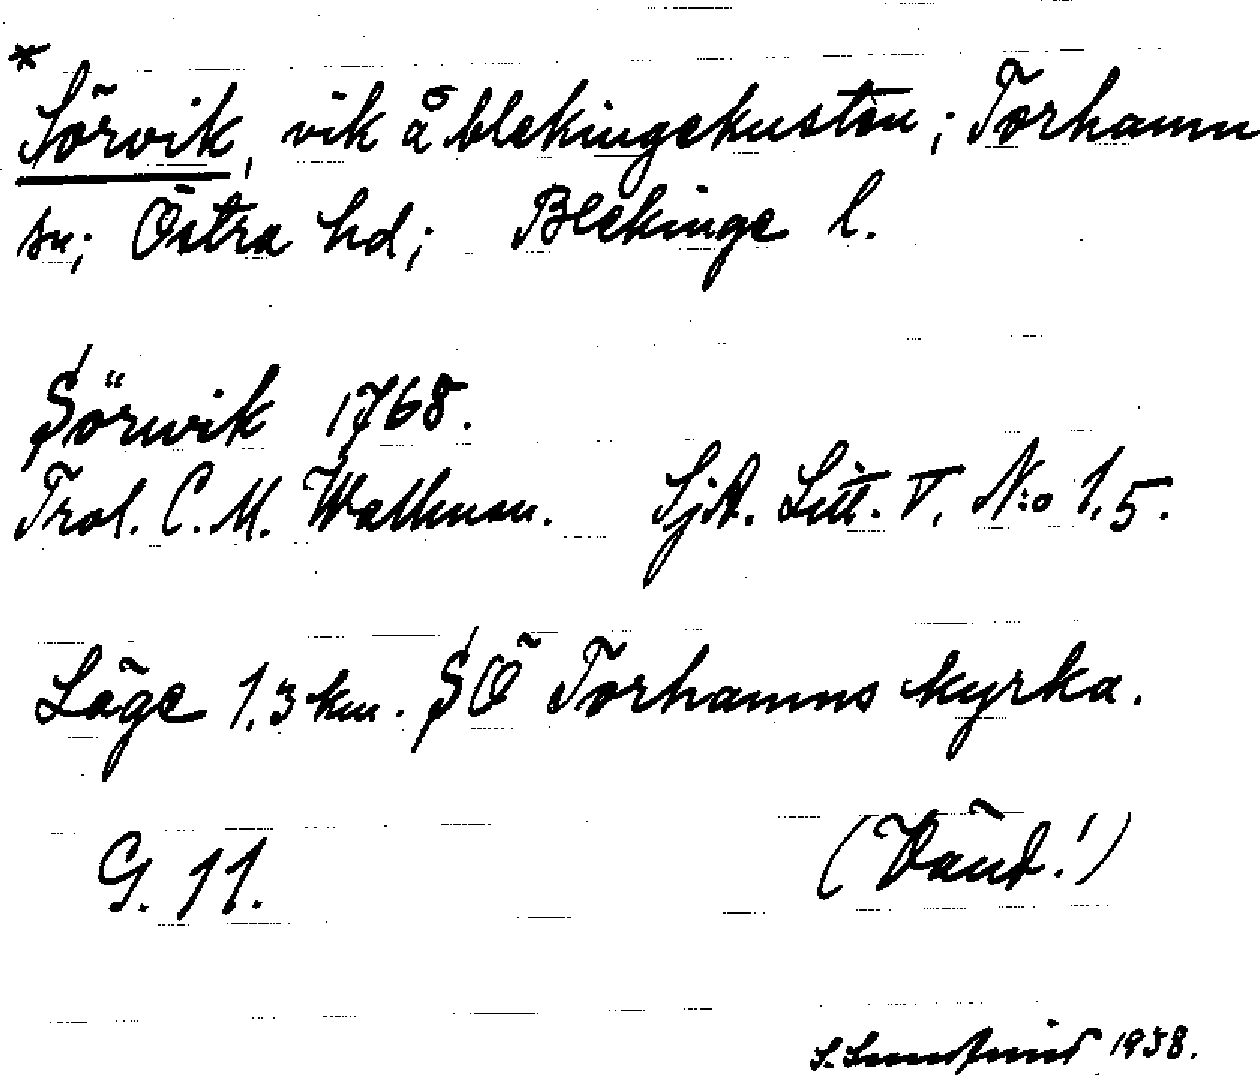 * Sörvik, vik å blekingekusten; Torhamn
sn; Östra hd; Blekinge l.
Sörwik 1768.
Trol. C. M. Wallman. SjA. Litt. V. N:o 1.5.
Läge 1.3 km. SÖ Torhamns kyrka.
G. 11. (Vänd!)
S. 1938.